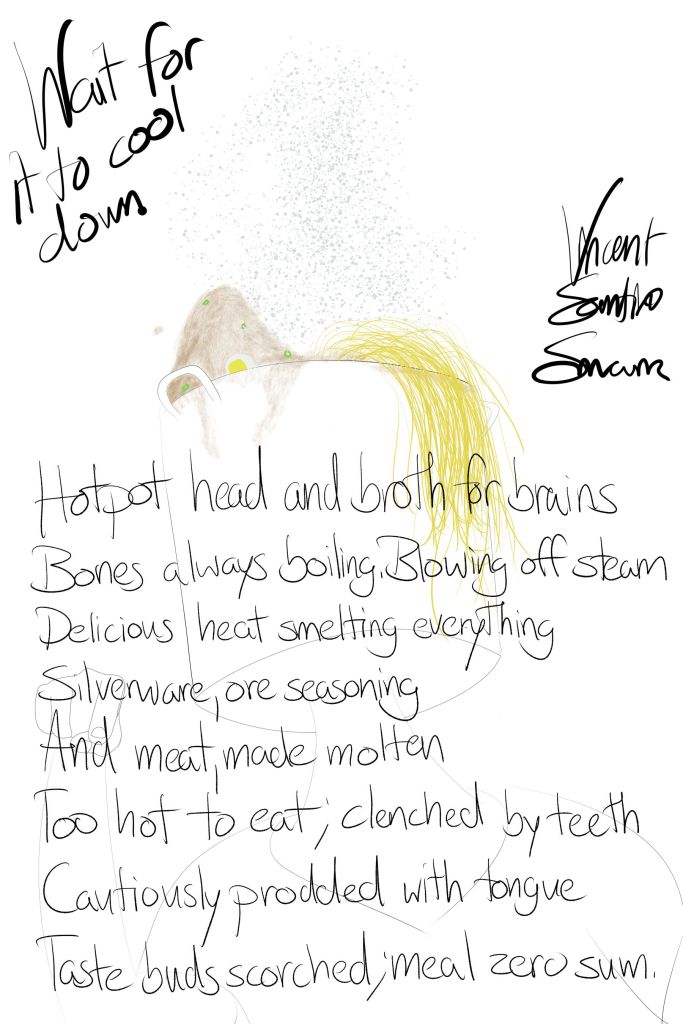 Wait for
it to cool
down
Vincent
Hotpot head and broth for brains
Bones always boiling. Blowing off steam
Delicious heat smelting everything
Silverware, ore seasoning
And meat, made molten
Too hot to eat; clenched by teeth
Cautiously prodded with tongue
Taste buds scorched; meal zero sum.